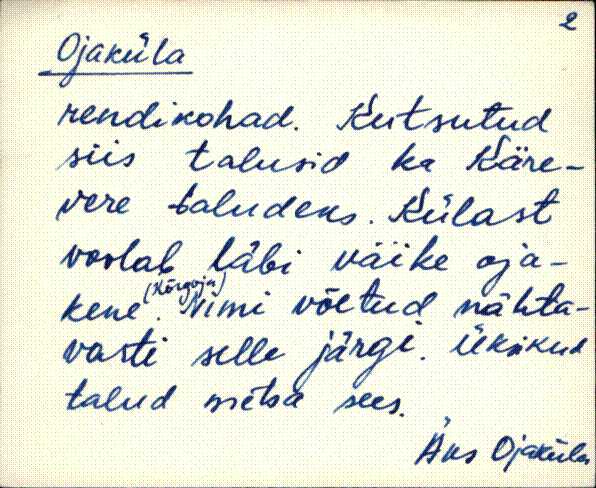 2
Ojaküla
rendikohad. Kutsutud
siis talusid ka Käre-
vere taludeks. Külast
voolab läbi väike oja-
kene (Kõrgoja). Nimi võetud nähta-
vasti selle järgi. Üksikud
talud metsa sees.
Äks Ojaküla